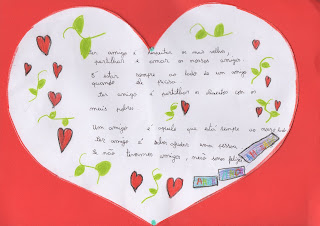 Ter amigo é respeitar os mais velhos,
partilhar e amar os nossos amigos.
É estar sempre ao lado de um amigo
quando ele precisa.
Ter amigo é partilhar os direitos com os
mais pobres.
Um amigo é aquele que está sempre ao nosso lado
Ter amigo é saber ajudar uma pessoa.
Se não tivermos amigos, não somos felizes.